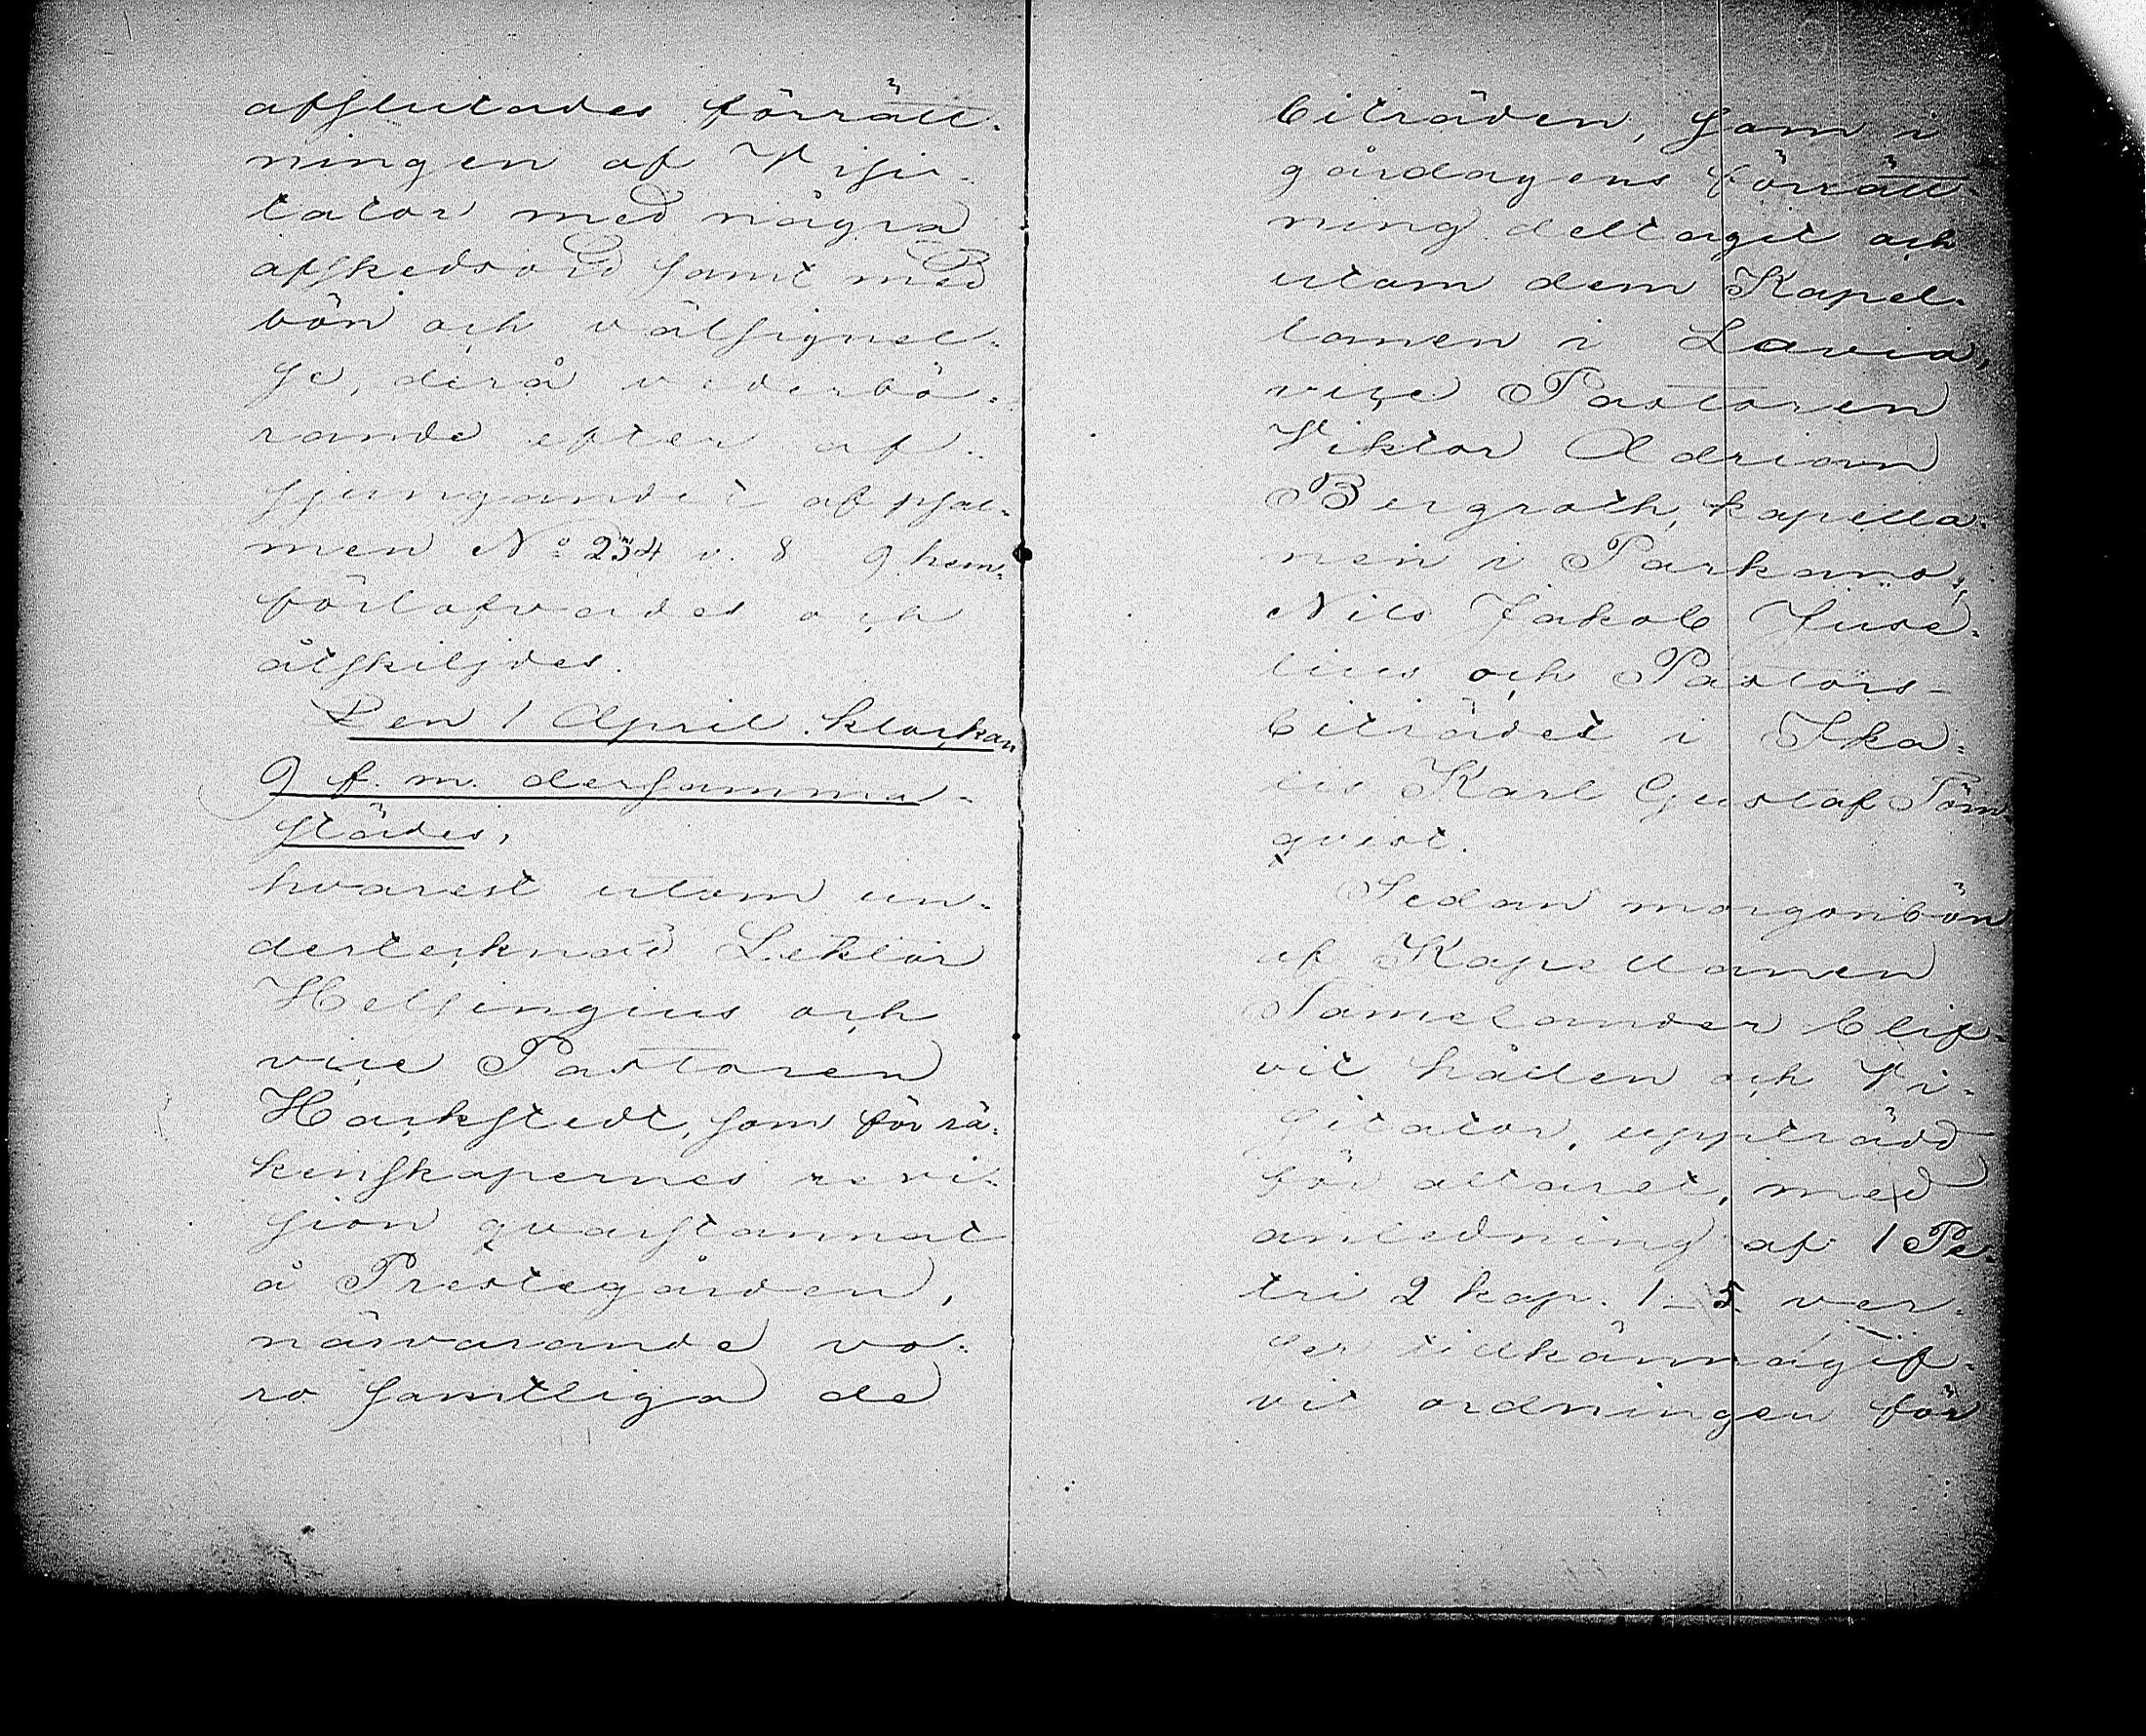 afslutades förrätt-
ningen af Visi-
tator med några
afskedsord samt med
bön och välsignel-
se, derå vederbö-
rande efter af-
sjungandet af psal-
men No 234 v. 8 9 hem-
förlofvades och
åtskiljdes.
Den 1 April klockan
9 f. m. dersamma-
städes,
hvarest utom un-
dertecknad Lektor
Helsingius och
vice Pastoren
Hackstedt, som för rä-
kenskapernes revi-
sion qvarstannat
å Prestegården,
närvarande vo-
ro samtliga de
biträden, som i
gårdagens förrätt-
ning deltagit och
utom dem Kapel-
lanen i Lavia,
vice Pastoren
Viktor Adrian
Bergroth, kapella-
nen i Parkano,
Nils Jakob Juse-
lius och Pastors-
biträdet i Ika-
lis Karl Gustaf Törn-
qvist.
Sedan morgonbön
af Kapellanen
Tamelander blif-
vit hållen och Vi-
sitator, uppträdd
för altaret, med
anledning af 1 Pe-
tri 2 kap. 1-5 ver-
ser tillkännagif-
vit ordningen för